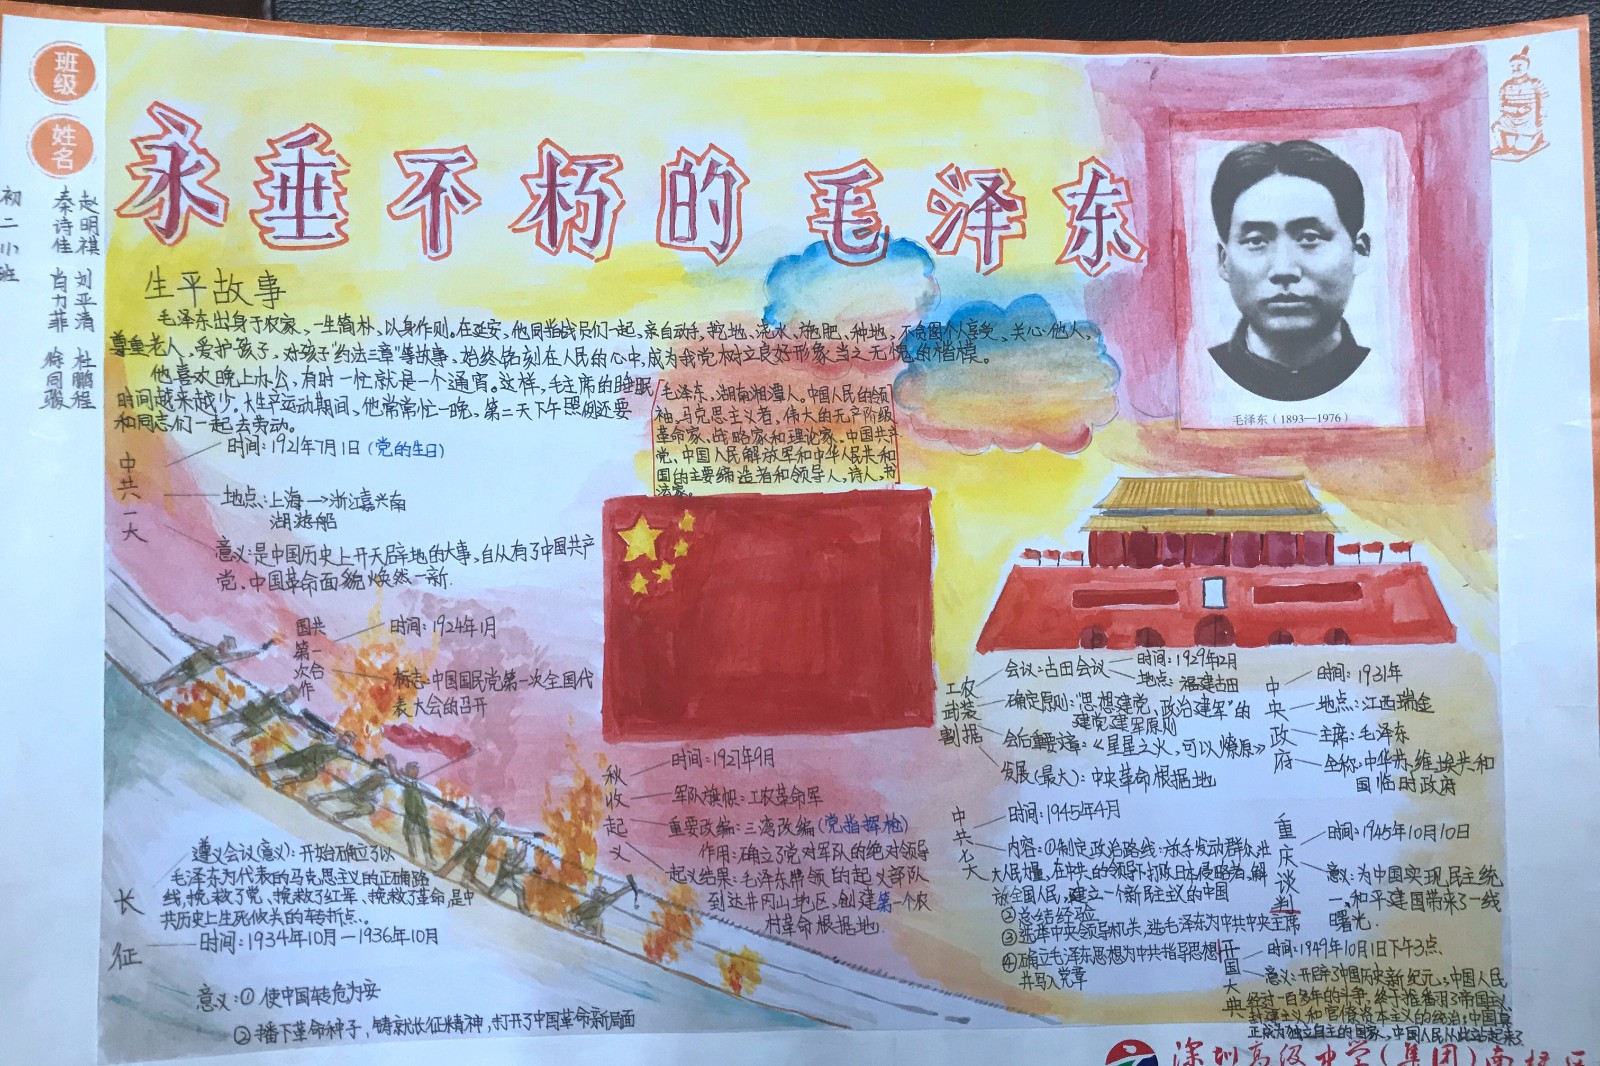 班级
姓名
初二小班
赵明祺
秦诗佳
刘平清
肖力菲
杜鹏程
徐同骏
永垂不朽的毛泽东
毛泽东（1893—1976）
生平故事
毛泽东出身于农家、一生简朴、以身作则。在延安，他同指战员们一起，亲自动手，挖地、浇水、施肥、种地，不贪图个人享受，关心他人，
尊重老人、爱护孩子，对孩子“约法三章”等故事，始终铭刻在人民的心中，成为我党树立良好形象当之无愧的楷模。
他喜欢晚上办公，有时一忙就是一个通宵。这样，毛主席的睡眠
时间越来越少。大生产运动期间，他常常忙一晚，第二天下午照例还要
和同志们一起去劳动。
毛泽东，湖南湘潭人。中国人民的领
袖，马克思主义者，伟大的无产阶级
革命家、战略家和理论家，中国共产
党、中国人民解放军和中华人民共和
国的主要缔造者和领导人，诗人，书
法家。
中共一大
时间：1921年7月1日（党的生日）
地点：上海—>浙江嘉兴南
湖游船
意义：是中国历史上开天辟地的大事，自从有了中国共产
党、中国革命面貌焕然一新.
国共第一次合作
时间：1924年1月
标志：中国国民党第一次全国代
表大会的召开
秋收起义
时间：1927年9月
军队旗帜：工农革命军
重要改编：三湾改编（党指挥枪）
作用：确立了党对军队的绝对领导
起义结果：毛泽东带领的起义部队
到达井冈山地区，创建第一个农
村革命根据地.
工农武装割据
会议：古田会议
时间：1929年12月
地点：福建古田
确定原则：“思想建党、政治建军”的
建党建军原则
会后重要文章：《星星之火，可以燎原》
发展（最大）：中央革命根据地
中央政府
时间：1931年
地点：江西瑞金
主席：毛泽东
全称：中华苏维埃共和
国临时政府
中共七大
时间：1945年4月
内容：①制定政治路线：放手发动群众，壮
大人民力量，在中共的领导下打败日本侵略者，解
放全国人民，建立一个新民主主义的中国
②总结经验
③选举中央领导机关，选毛泽东为中共中央主席
④确立毛泽东思想为中共指导思想
并写入党章
重庆谈判
时间：1945年10月10日
意义：为中国实现民主统
一、和平建国带来了一线
曙光.
开国大典
时间：1949年10月1日下午3点.
意义：开辟了中国历史新纪元；中国人民
经过一百多年的斗争，终于推翻了帝国主义
封建主义和官僚资本主义的统治；中国真
正成为独立自主的国家，中国人民从此站起来了
长征
遵义会议（意义）：开始确立了以
毛泽东为代表的马克思主义的正确路
线，挽救了党、挽救了红军、挽救了革命，是中
共历史上生死攸关的转折点.
时间：1934年10月—1936年10月
意义：①使中国转危为安
②播下革命种子，铸就长征精神，打开了中国革命新局面
深圳高级中学（集团）南校区